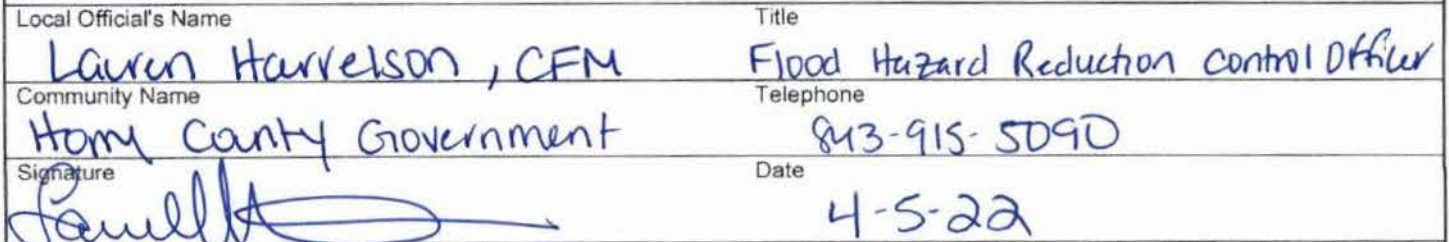 Local Official's Name Title
Lauren Harrelson, CFM Flood Hazard Reduction Control Officer
Community Name Telephone
Horry County Government 843-915-5090
Signature Date
4-5-22